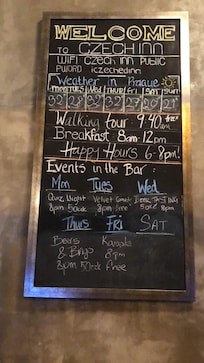 WELCOME
TO CZECH INN
WIFI CZECH INN PUBLIC
PWORD iczechedinn
Weather in Prague
MON TUES Wed THUR FRI SAT SUN
32 28 32 32 27 26 29
Walking tour 9:40am free
Breakfast 8am-12pm
Happy Hours 6-8pm!
Events in the Bar:
Mon Tues Wed
Quiz Night Velvet Comedy Beer TASTING
8pm 8pm free 8pm
Thurs Fri SAT
Beers Karaoke
& Bingo 8pm
8pm free